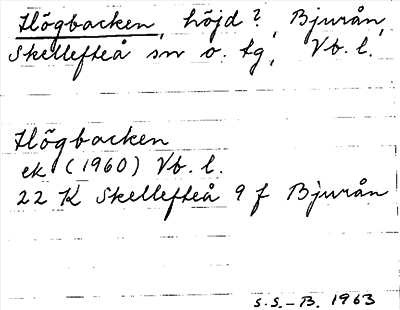 Högbacken, höjd?, Bjurån,
Skellefteå sn o. tg, Vb. l.
Högbacken
ek (1960) Vb. l.
22 K Skellefteå 9 f Bjurån
S.S.–B. 1963